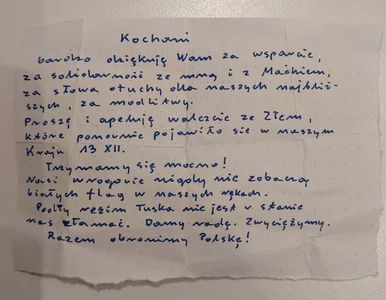 Kochani
bardzo dziękuję Wam za wsparcie,
za solidarność ze mną i z Maćkiem,
za słowa otuchy dla naszych najbliż-
szych, za modlitwy.
Proszę i apeluję walczcie ze Złem,
które ponownie pojawiło się w naszym
Kraju 13 XII.
Trzymamy się mocno!
Nasi wrogowie nigdy nie zobaczą
białych flag w naszych rękach.
Podły reżim Tuska nie jest w stanie
nas złamać. Damy radę. Zwyciężymy.
Razem obronimy Polskę!